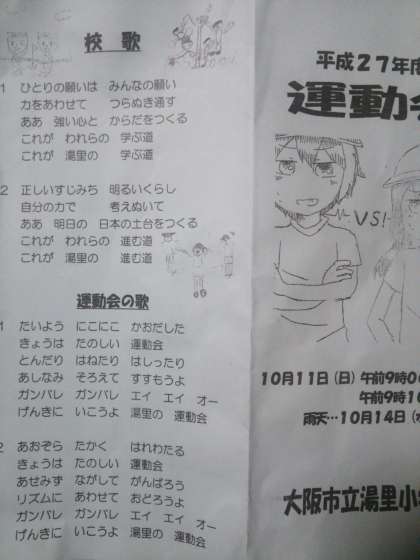 校歌
1 ひとりの願いは みんなの願い
力をあわせて つらぬき通す
ああ 強い心と からだをつくる
これが われらの 学ぶ道
これが 湯里の 学ぶ道
2 正しいすじみち 明るいくらし
自分の力で 考えぬいて
ああ 明日の 日本の土台をつくる
これが われらの 進む道
これが 湯里の 進む道
運動会の歌
1 たいよう にこにこ かおだした
きょうは たのしい 運動会
とんだり はねたり はしったり
あしなみ そろえて すすもうよ
ガンバレ ガンバレ エイ エイ オー
げんきに いこうよ 湯里の 運動会
2 あおぞら たかく はれわたる
きょうは たのしい 運動会
あせみず ながして がんばろう
リズムに あわせて おどろうよ
ガンバレ ガンバレ エイ エイ オー
げんきに いこうよ 湯里の 運動会
平成27年度
運動会
VS!
10月11日(日) 午前9時0
午前9時1
雨天…10月14日(水
大阪市立湯里小